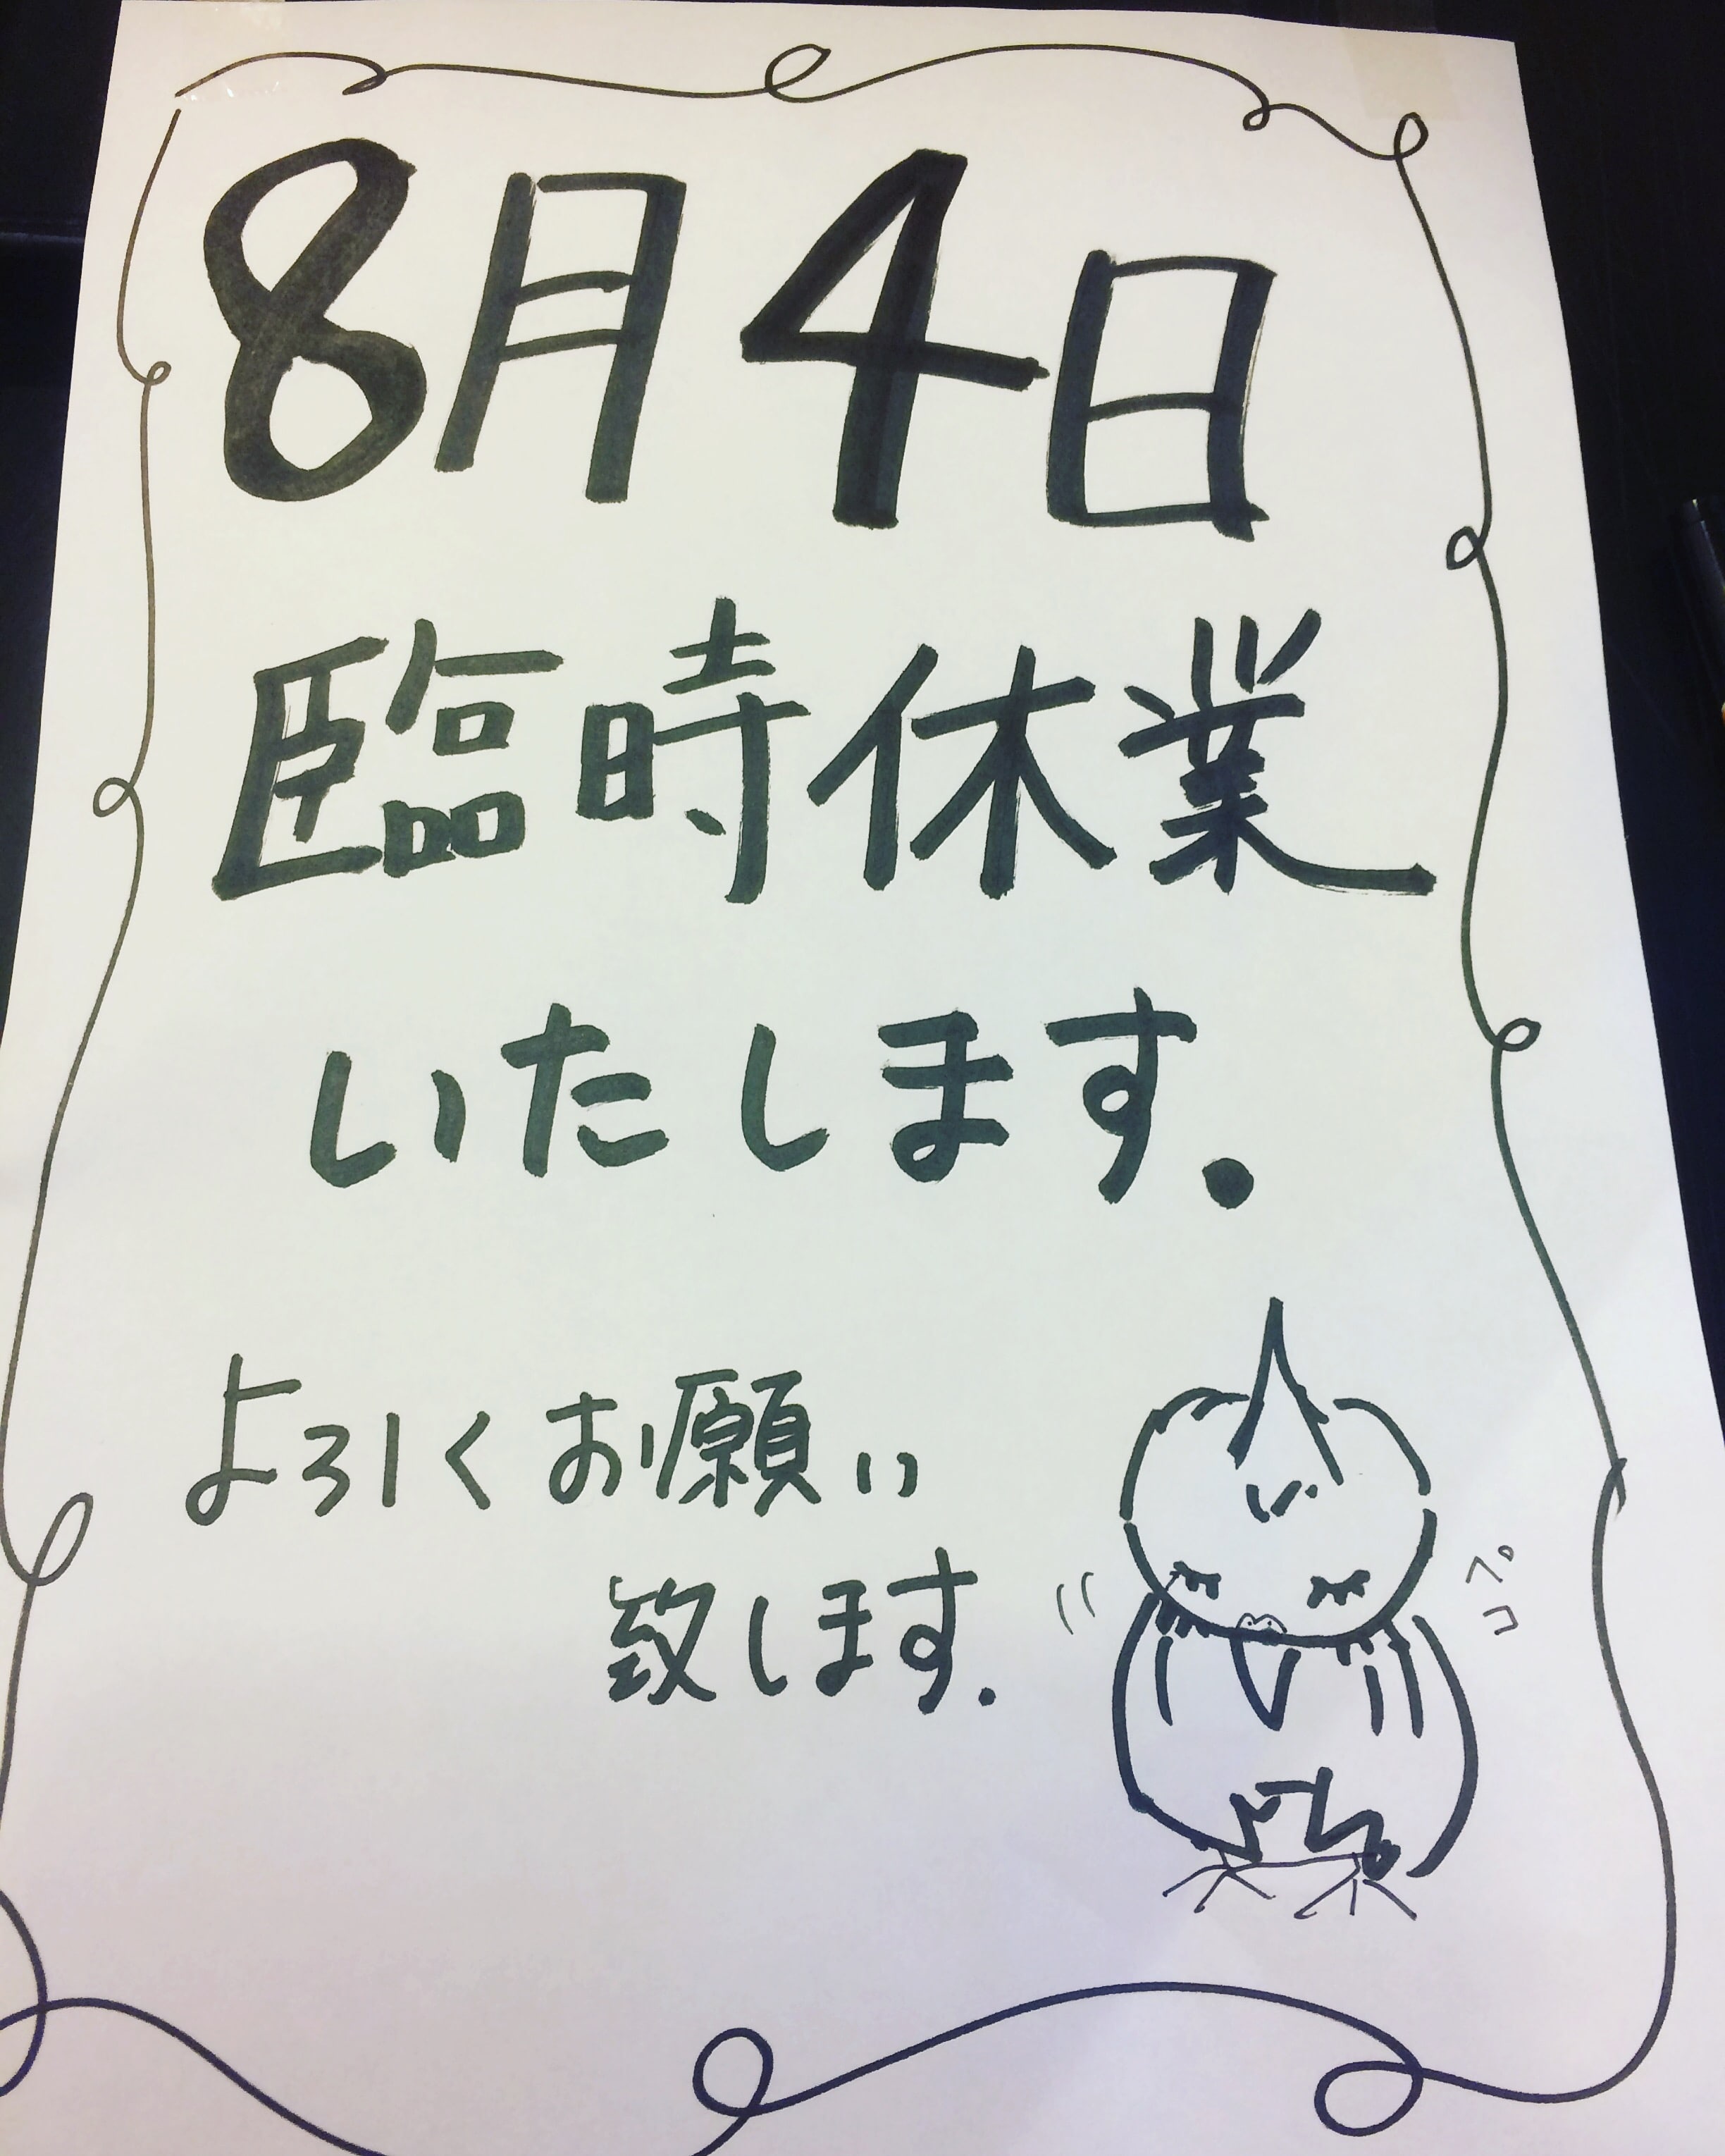 8月4日
臨時休業
いたします.
よろしくお願い
致します.
ペコ